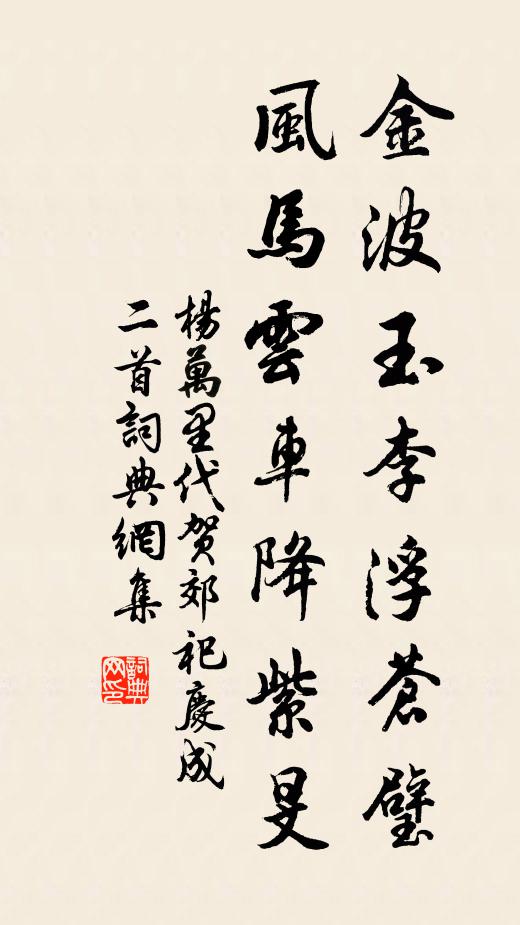 金波玉李浮蒼璧
風馬雲車降紫旻
楊萬里代賀郊祀慶成
二首詞典網集
詞典网印